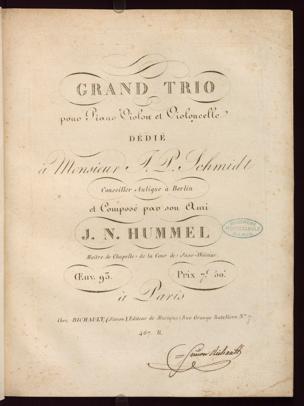 GRAND TRIO
pour Piano Violon et Violoncelle
DÉDIÉ
à Monsieur J. P. Schmidt
Conseiller Aulique à Berlin
et Composé par son Ami
J. N. HUMMEL
Maître de Chapelle de la Cour de Saxe-Weimar
Œuv. 93. Prix 7f. 50c.
à Paris
Chez RICHAULT, Editeur de Musique, Rue Grange Batelière No. 7
467. R.
Simon Richault